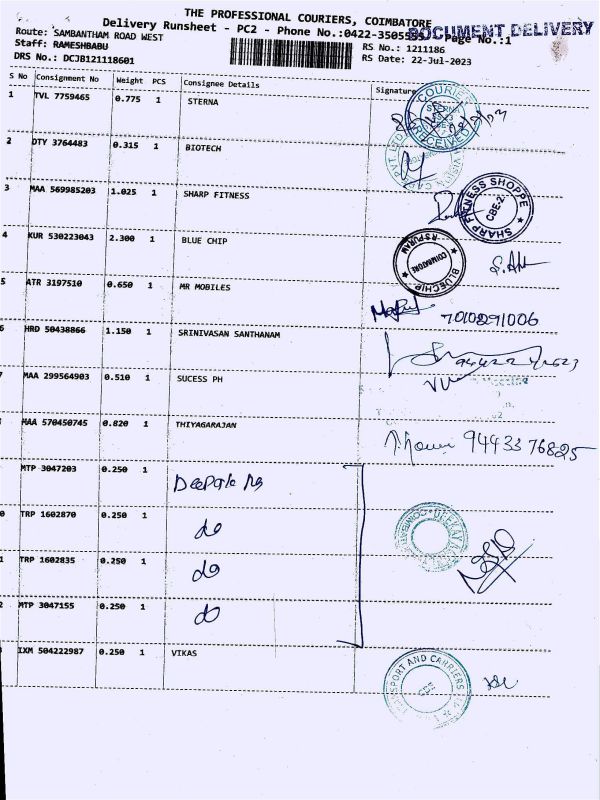 THE PROFESSIONAL COURIERS, COIMBATORE
Delivery Runsheet - PC2 - Phone No.:0422-3505555 Page No.:1
DOCUMENT DELIVERY
Route: SAMBANTHAM ROAD WEST
RS No.: 1211186
Staff: RAMESHBABU
RS Date: 22-Jul-2023
DRS No.: DCJB121118601
S No Consignment No Weight PCS Consignee Details Signature
1 TVL 7759465 0.775 1 STERNA
COURIER
STERNA
RECEIVED
2 DTY 3764483 0.315 1 BIOTECH
3 MAA 569985203 1.025 1 SHARP FITNESS
SHARP FITNESS SHOPPE
CBE-2
4 KUR 530223043 2.300 1 BLUE CHIP
R S PURAM
COIMBATORE
BLUECHIP
5 ATR 3197510 0.650 1 MR MOBILES
7010891006
6 HRD 50438866 1.150 1 SRINIVASAN SANTHANAM
7 MAA 299564903 0.510 1 SUCESS PH
MAA 570450745 0.820 1 THIYAGARAJAN
9443376825
MTP 3047203 0.250 1 Deepak
0 TRP 1602870 0.250 1 do
1 TRP 1602835 0.250 1 do
2 MTP 3047155 0.250 1 do
IXM 504222987 0.250 1 VIKAS
TRANSPORT AND CARRIERS
CBE